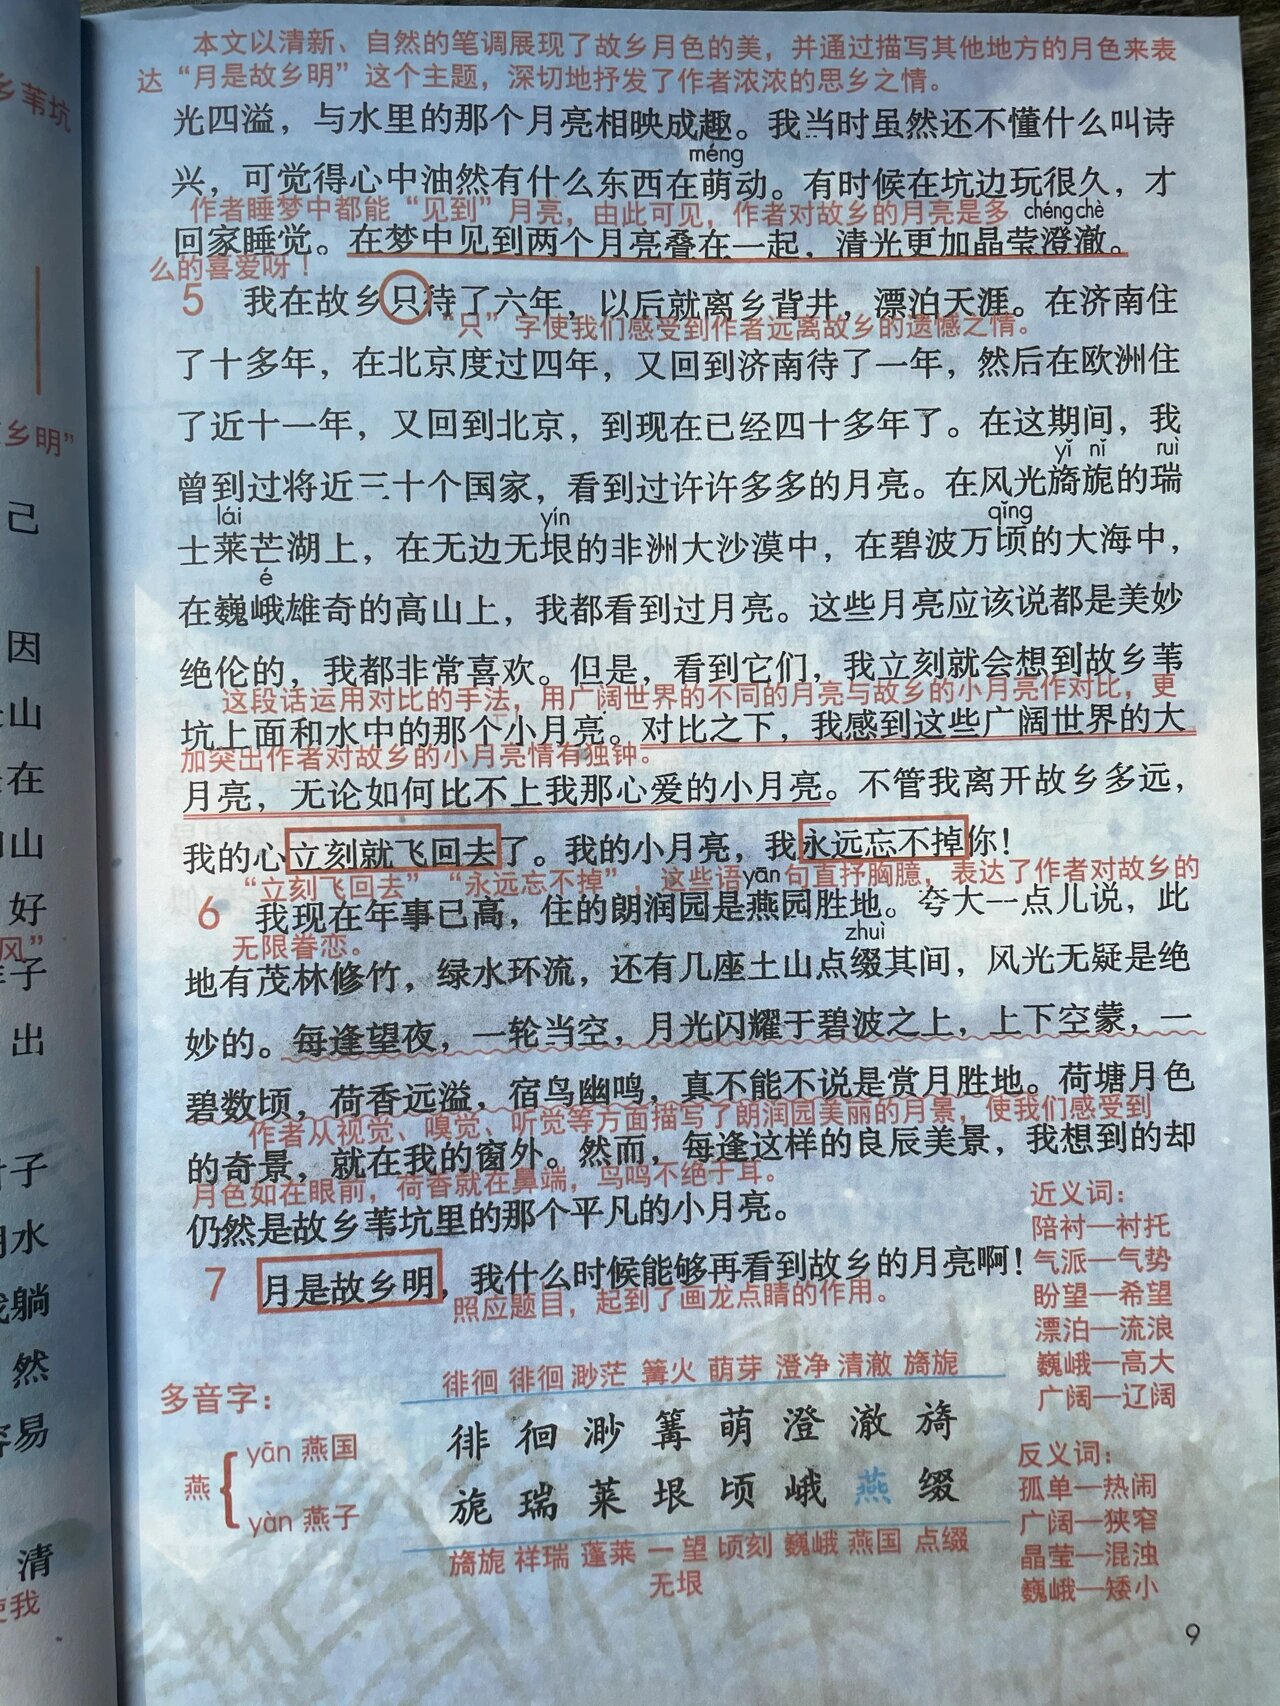 本文以清新、自然的笔调展现了故乡月色的美，并通过描写其他地方的月色来表
达“月是故乡明”这个主题，深切地抒发了作者浓浓的思乡之情。
光四溢，与水里的那个月亮相映成趣。我当时虽然还不懂什么叫诗
méng
兴，可觉得心中油然有什么东西在萌动。有时候在坑边玩很久，才
作者睡梦中都能“见到”月亮，由此可见，作者对故乡的月亮是多
chéng chè
回家睡觉。在梦中见到两个月亮叠在一起，清光更加晶莹澄澈。
么的喜爱呀！
5 我在故乡只待了六年，以后就离乡背井，漂泊天涯。在济南住
“只”字使我们感受到作者远离故乡的遗憾之情。
了十多年，在北京度过四年，又回到济南待了一年，然后在欧洲住
了近十一年，又回到北京，到现在已经四十多年了。在这期间，我
yǐ nǐ ruì
曾到过将近三十个国家，看到过许许多多的月亮。在风光旖旎的瑞
lái yín qǐng
士莱芒湖上，在无边无垠的非洲大沙漠中，在碧波万顷的大海中，
é
在巍峨雄奇的高山上，我都看到过月亮。这些月亮应该说都是美妙
绝伦的，我都非常喜欢。但是，看到它们，我立刻就会想到故乡苇
这段话运用对比的手法，用广阔世界的不同的月亮与故乡的小月亮作对比，更
坑上面和水中的那个小月亮。对比之下，我感到这些广阔世界的大
加突出作者对故乡的小月亮情有独钟。
月亮，无论如何比不上我那心爱的小月亮。不管我离开故乡多远，
我的心立刻就飞回去了。我的小月亮，我永远忘不掉你！
“立刻飞回去”“永远忘不掉”，这些语句直抒胸臆，表达了作者对故乡的
yān
6 我现在年事已高，住的朗润园是燕园胜地。夸大一点儿说，此
无限眷恋。
zhuì
地有茂林修竹，绿水环流，还有几座土山点缀其间，风光无疑是绝
妙的。每逢望夜，一轮当空，月光闪耀于碧波之上，上下空蒙，一
碧数顷，荷香远溢，宿鸟幽鸣，真不能不说是赏月胜地。荷塘月色
作者从视觉、嗅觉、听觉等方面描写了朗润园美丽的月景，使我们感受到
的奇景，就在我的窗外。然而，每逢这样的良辰美景，我想到的却
月色如在眼前，荷香就在鼻端，鸟鸣不绝于耳。
仍然是故乡苇坑里的那个平凡的小月亮。
7 月是故乡明，我什么时候能够再看到故乡的月亮啊！
照应题目，起到了画龙点睛的作用。
近义词：
陪衬—衬托
气派—气势
盼望—希望
漂泊—流浪
巍峨—高大
广阔—辽阔
反义词：
孤单—热闹
广阔—狭窄
晶莹—混浊
巍峨—矮小
多音字：
燕
yān 燕国
yàn 燕子
徘徊 徘徊 渺茫 篝火 萌芽 澄净 清澈 旖旎
徘 徊 渺 篝 萌 澄 澈 旖
旎 瑞 莱 垠 顷 峨 燕 缀
旖旎 祥瑞 蓬莱 一望 顷刻 巍峨 燕国 点缀
无垠
9
乡苇坑
乡明”
己
因
山
在
山
好
风”
子
出
子
水
躺
然
易
清
使我